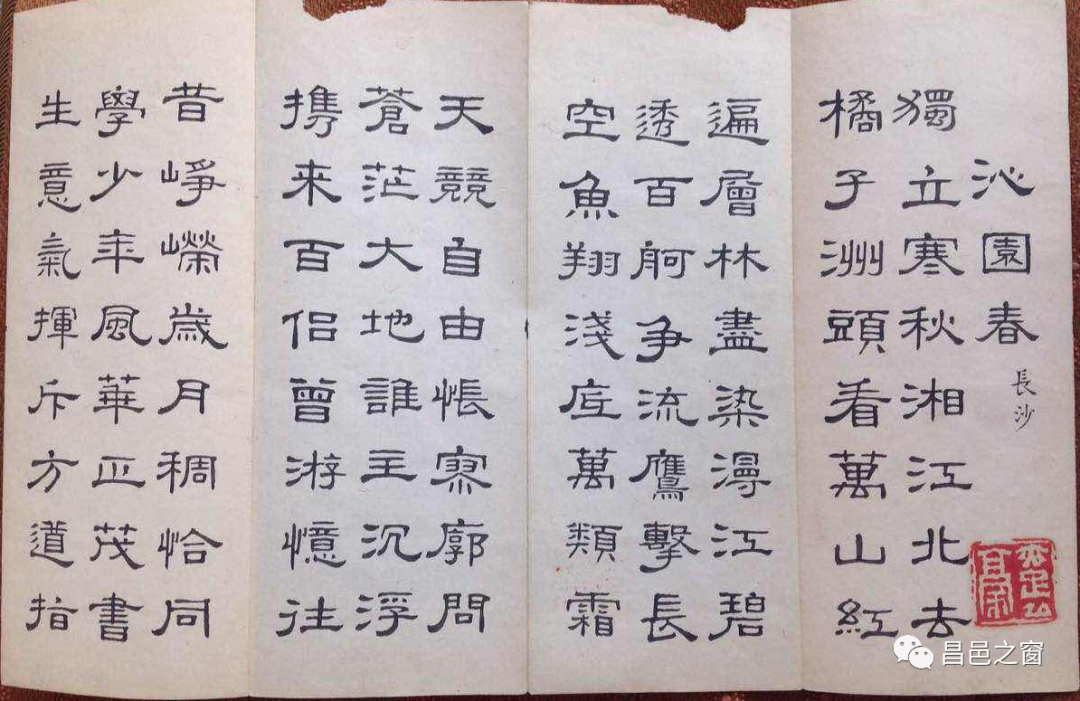 沁園春 長沙
獨立寒秋湘江北去
橘子洲頭看萬山紅
遍層林盡染漫江碧
透百舸争流鷹擊長
空魚翔淺底萬類霜
天競自由悵寥廓問
蒼茫大地誰主沉浮
携来百侣曾游憶往
昔崢嶸歲月稠恰同
學少年風華正茂書
生意氣揮斥方遒指
昌邑之窗